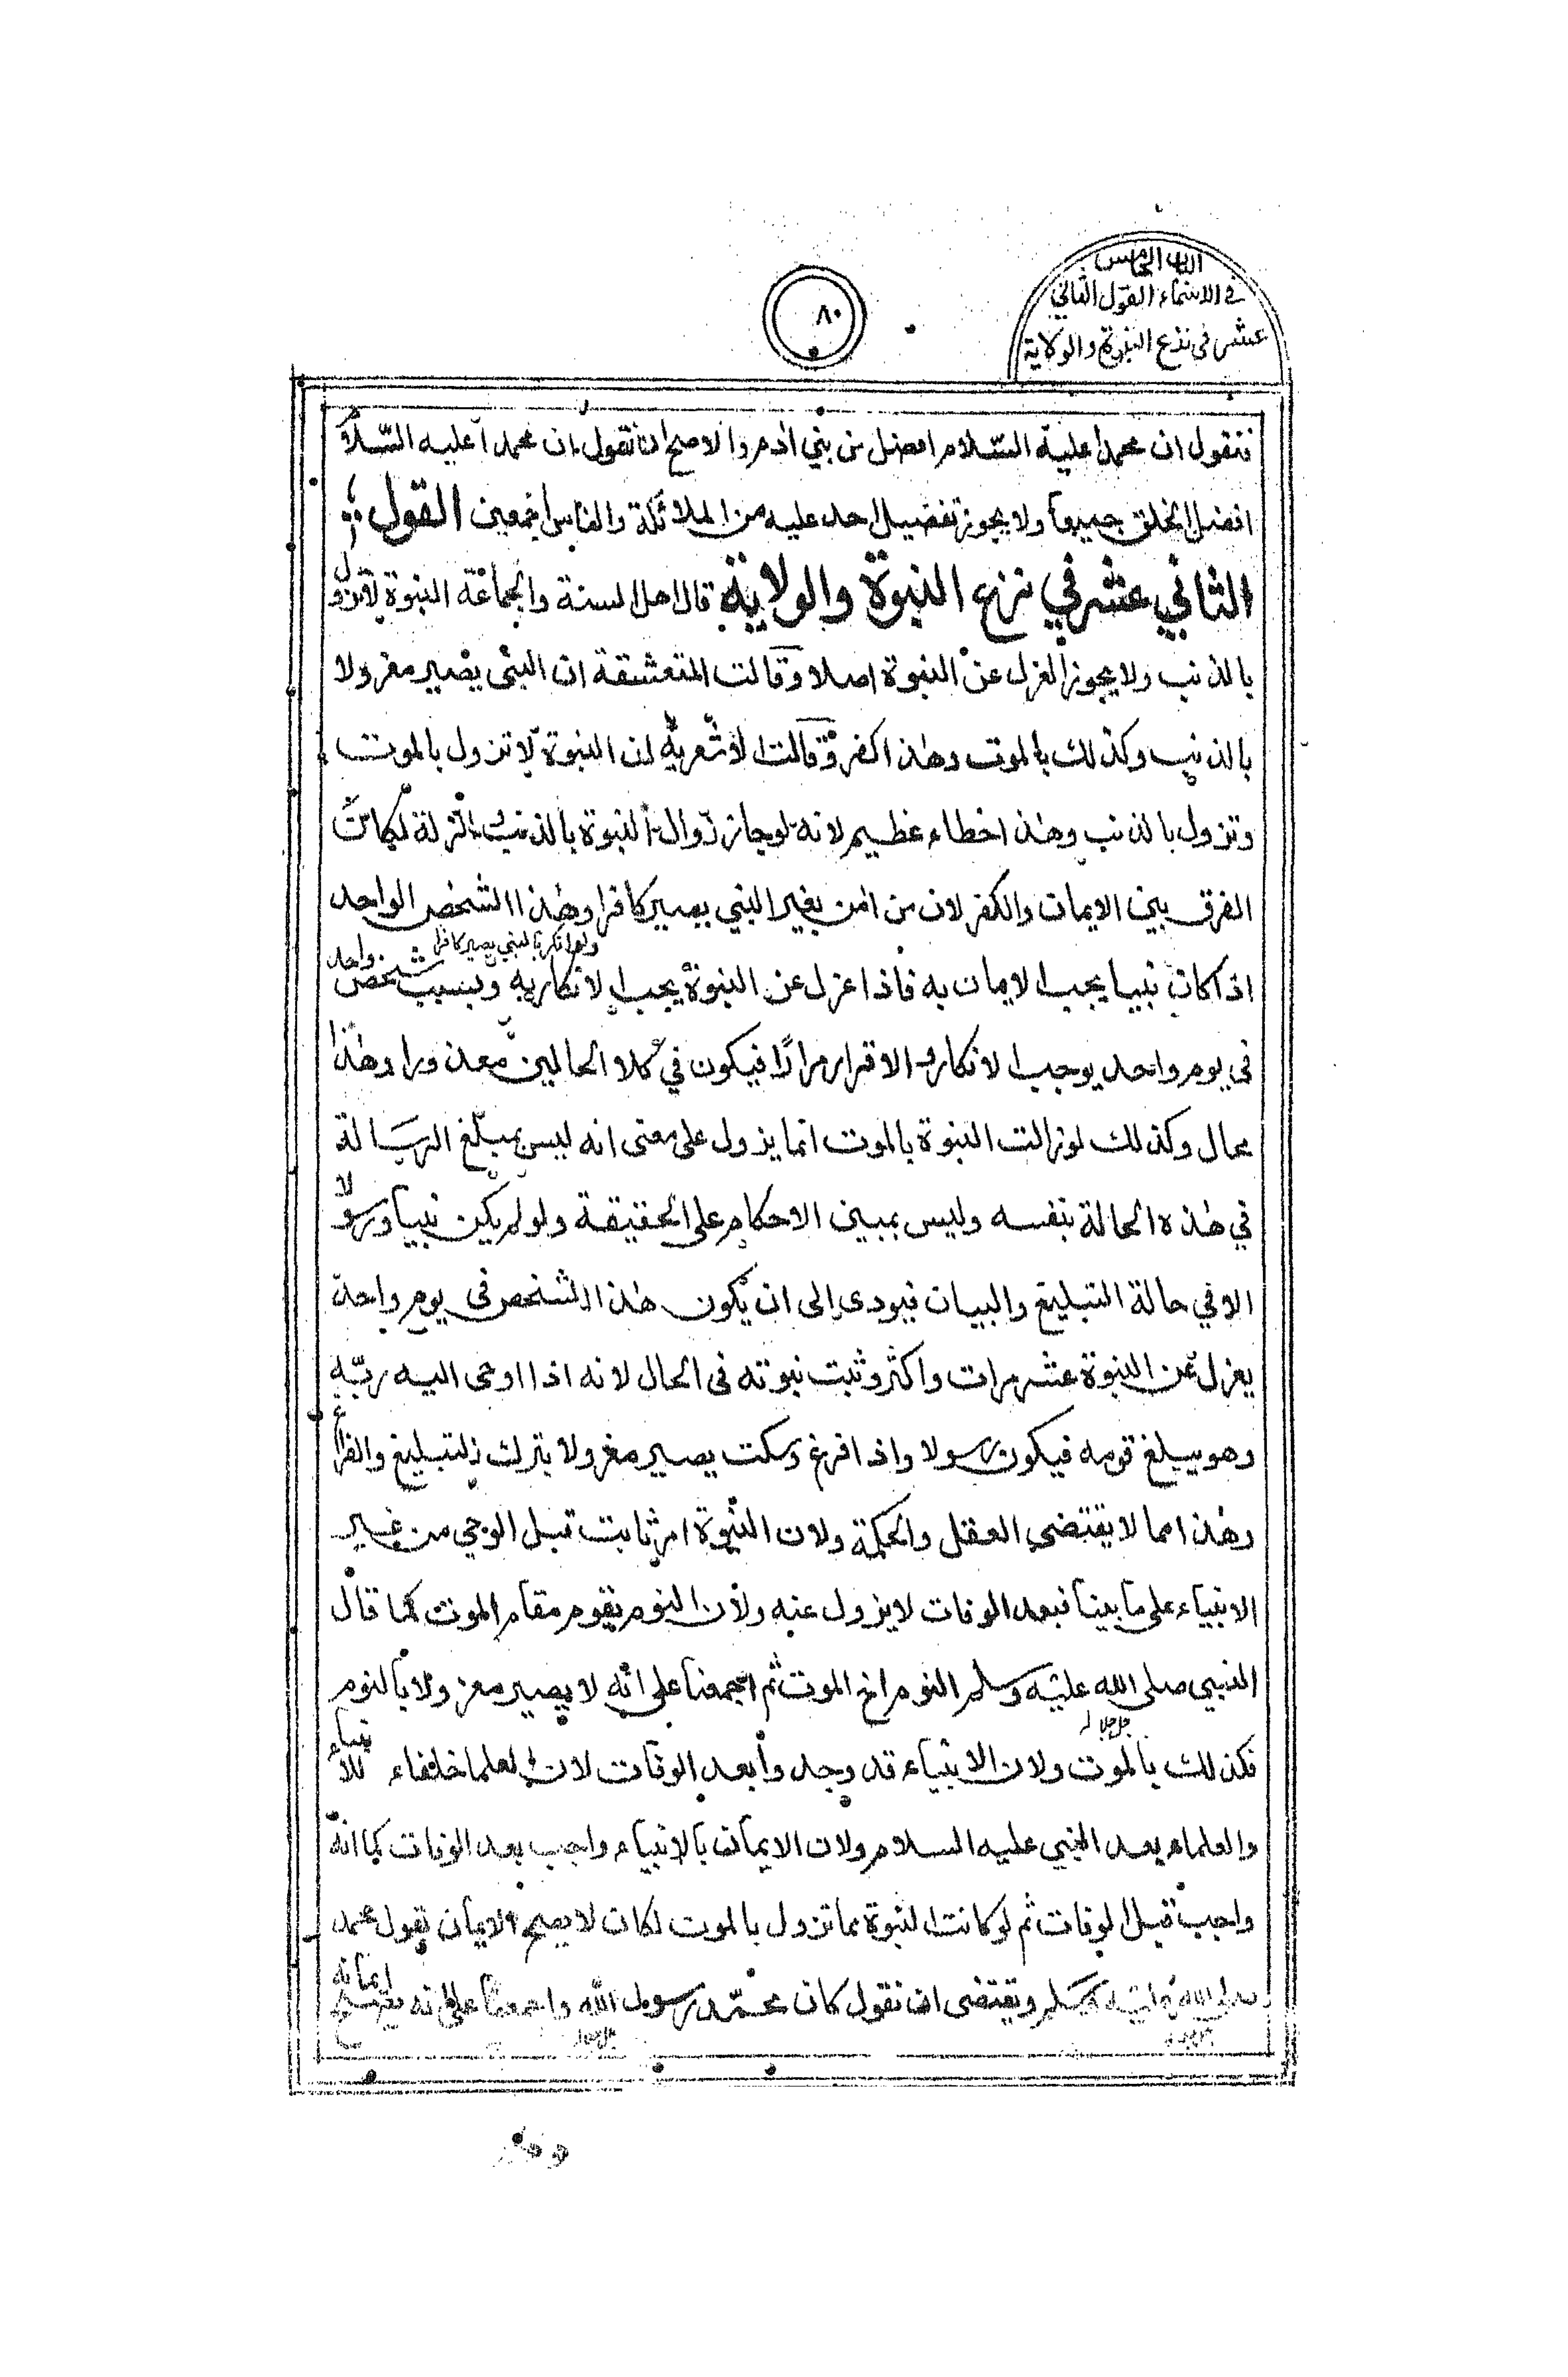 الباب الخامس
في الانتماء القول الثاني
عشر في نزع النبوة والولاية
٨٠
فنقول ان محمدا عليه السلام افضل من بني اٰدم والاصح انا نقول ان محمدا عليه السلام
افضل الخلق جميعا ولا يجوز تفضيل احد عليه من الملائكة والناس اجمعين القول
الثاني عشر في نزع النبوة والولاية قال اهل السنة والجماعة النبوة لا تزول
بالذنب ولا يجوز العزل عن النبوة اصلا وقالت المتعشقة ان النبي يصير معزولا
بالذنب وكذلك بالموت وهذا كفر وقالت الاشعرية ان النبوة لا تزول بالموت
وتزول بالذنب وهذا خطاء عظيم لانه لو جاز زوال النبوة بالذنب والزلة لكانت
الفرق بين الايمان والكفر لان من اٰمن بغير النبي يصير كافرا وهذا الشخص الواحد
ولو انكر بالنبي يصير كافرا
اذا كان نبيا يجب الايمان به فاذا عزل عن النبوة يجب الانكار به وبسبب شخص واحد
في يوم واحد يوجب الانكار والاقرار مرارًا فيكون في كلا الحالين معذورا وهذا
محال وكذلك لو زالت النبوة بالموت انما يزول على معنى انه ليس بمبلغ الرسالة
في هذه الحالة بنفسه وليس بمبين الاحكام على الحقيقة ولو لم يكن نبيا ورسولا
الا في حالة التبليغ والبيان فيودى الى ان يكون هذا الشخص فى يوم واحد
يعزل عن النبوة عشر مرات واكثر وثبت نبوته فى الحال لانه اذا اوحى اليه ربّه
وهو يبلغ قومه فيكون رسولا واذا فرغ وسكت يصير معزولا بترك التبليغ والفراغ
وهذا مما لا يقتضى العقل والحكمة ولان النبوة امر ثابت قبل الوحي من غير
الانبياء على ما بينا فبعد الوفات لا يزول عنه ولأن النوم يقوم مقام الموت كما قال
النبي صلى الله عليه وسلم النوم اخ الموت ثم اجمعنا على انه لا يصير معزولا بالنوم
جل جلاله
فكذلك بالموت ولان الانبياء قد وجدوا بعد الوفات لان العلما خلفاء للانبياء
والعلماء بعد النبي عليه السلام ولان الايمان بالانبياء واجب بعد الوفات كما انه
واجب قبل الوفات ثم لو كانت النبوة مما تزول بالموت لكان لا يصح الايمان بقول محمد
صلى الله عليه وسلم ويقتضى ان نقول كان محمد رسول الله واجمعنا على انه يصح ايمانه